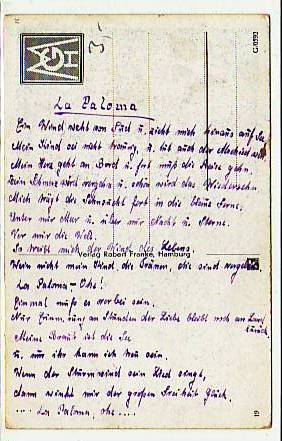 3,-
G.0592
La Paloma
Ein Wind weht von Süd u. zieht mich hinaus auf See
Mein Kind sei nicht traurig, u. tut auch der Abschied weh
Mein Herz geht an Bord u. fort muß die Reise gehn
Dein Schmerz wird vergehn u. schön wird das Wiedersehn
Mich trägt die Sehnsucht fort in die blaue Ferne,
Unter mir Meer u. über mir Nacht u. Sterne.
Vor mir die Welt.
So treibt mich der Wind des Lebens,
Verlag Robert Franke, Hamburg
Wein nicht mein Kind die Tränen, die sind vergebens
La Paloma - Ohe!
Einmal muß es vorbei sein.
Nur an Stunden der Liebe bleibt noch an Land
zurück.
Meine Braut ist die See
u. nur ihr kann ich treu sein.
Wenn der Sturmwind sein Lied singt,
dann winkt mir der großen Freiheit Glück.
.... La Paloma, ohe ....
19